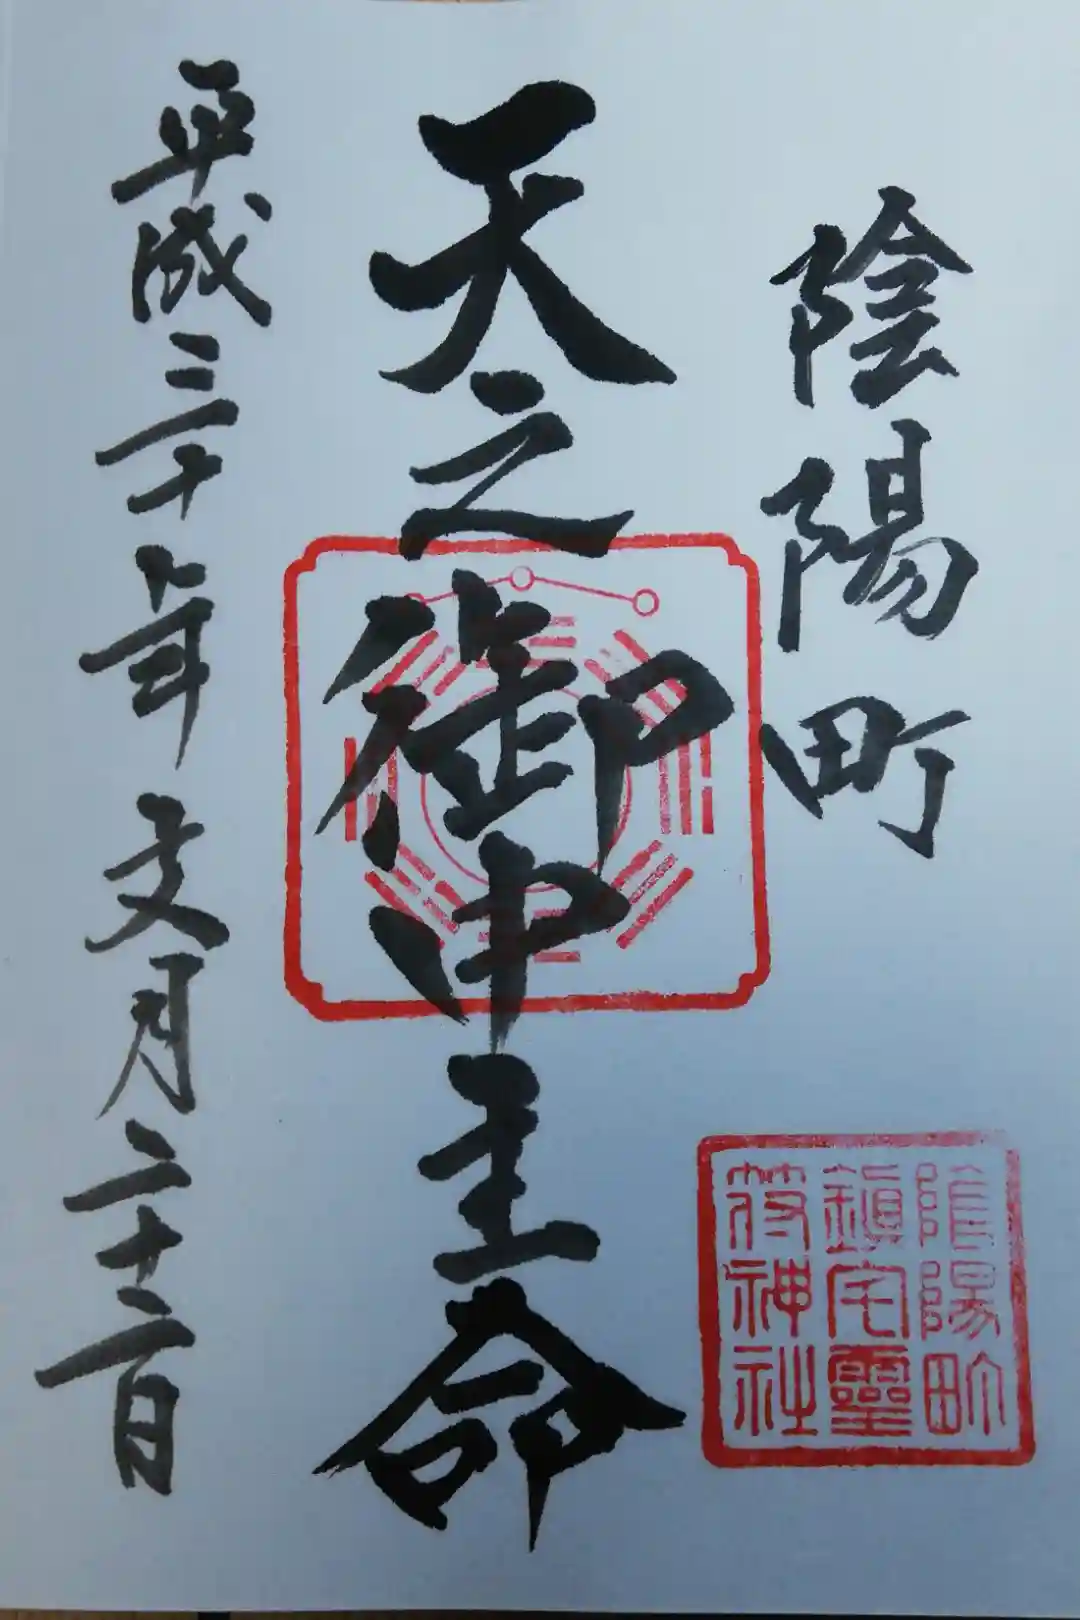 陰陽町
天之御中主命
平成三十年文月二十二日
陰陽町
鎮宅靈
符神社